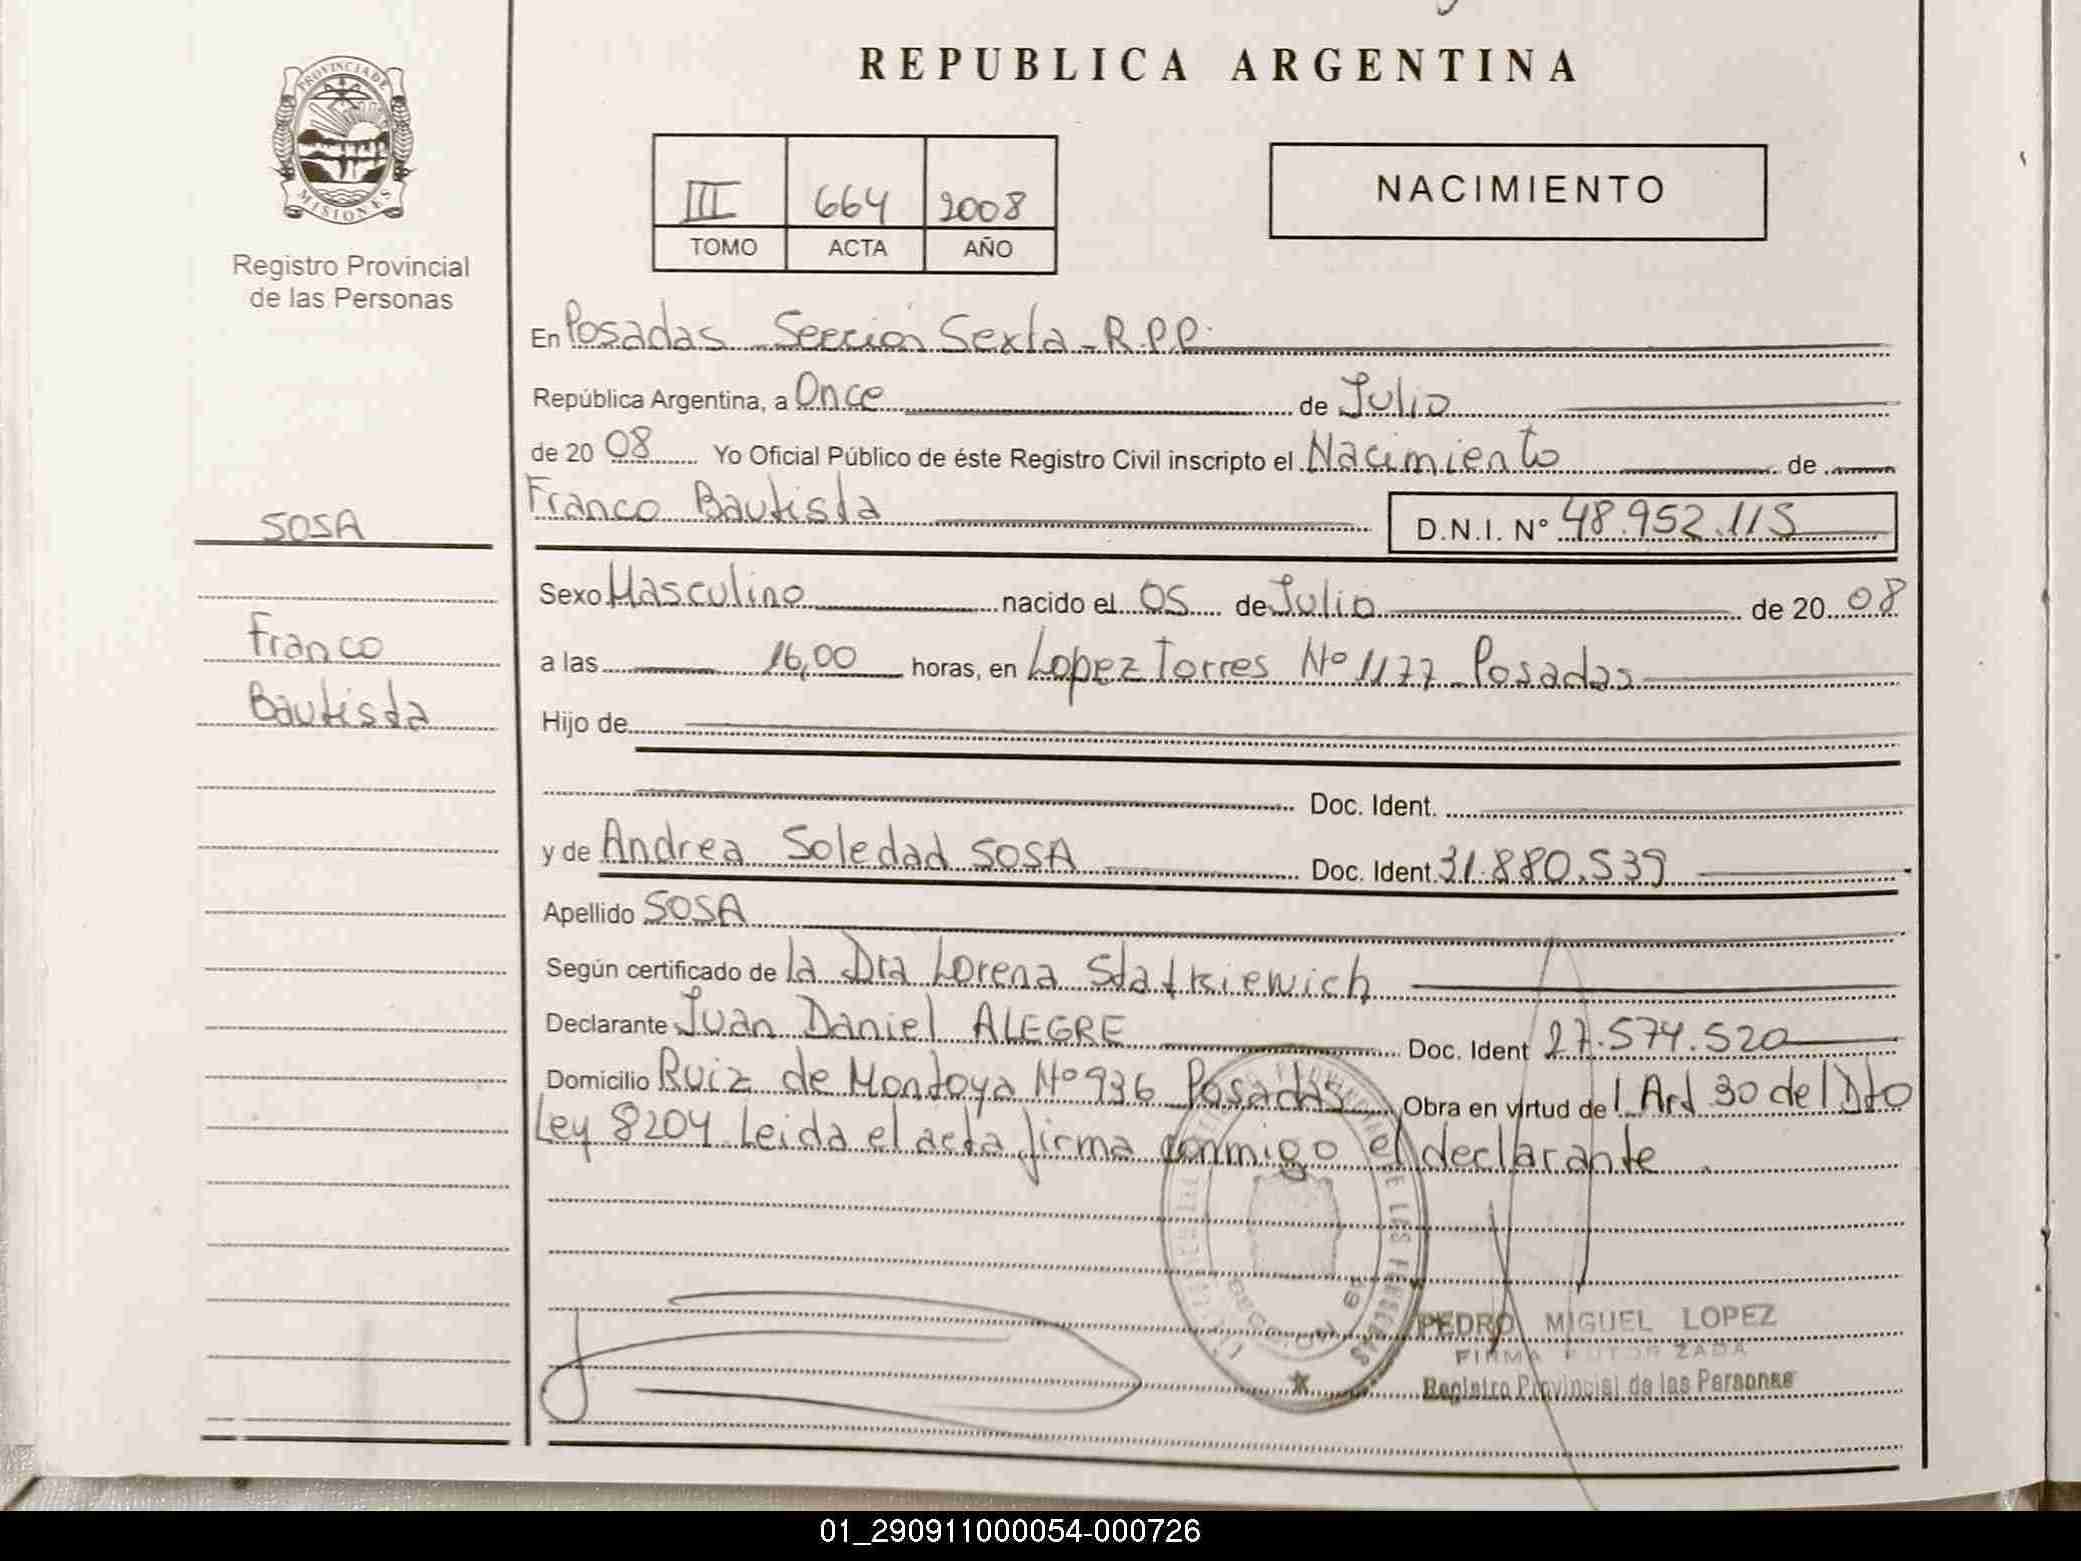 REPUBLICA ARGENTINA
PROVINCIA DE
MISIONES
Registro Provincial
de las Personas
III 664 2008
TOMO ACTA AÑO
NACIMIENTO
En Posadas - Sección Sexta - R.P.P.
República Argentina, a Once de Julio
de 20 08 Yo Oficial Público de éste Registro Civil inscripto el Nacimiento de
Franco Bautista D.N.I. Nº 48.952.115
SOSA
Franco
Bautista
Sexo Masculino nacido el 05 de Julio de 20 08
a las 16,00 horas, en Lopez Torres Nº 1177 Posadas
Hijo de
Doc. Ident.
y de Andrea Soledad SOSA Doc. Ident. 31.880.539
Apellido SOSA
Según certificado de la Dra Lorena
Declarante Juan Daniel ALEGRE Doc. Ident 27.574.520
Domicilio Ruiz de Montoya Nº 936 Posadas Obra en virtud del Art 30 del Dto
Ley 8204 Leida el acta firma conmigo el declarante
PEDRO MIGUEL LOPEZ
FIRMA AUTORIZADA
Registro Provincial de las Personas
01_290911000054-000726